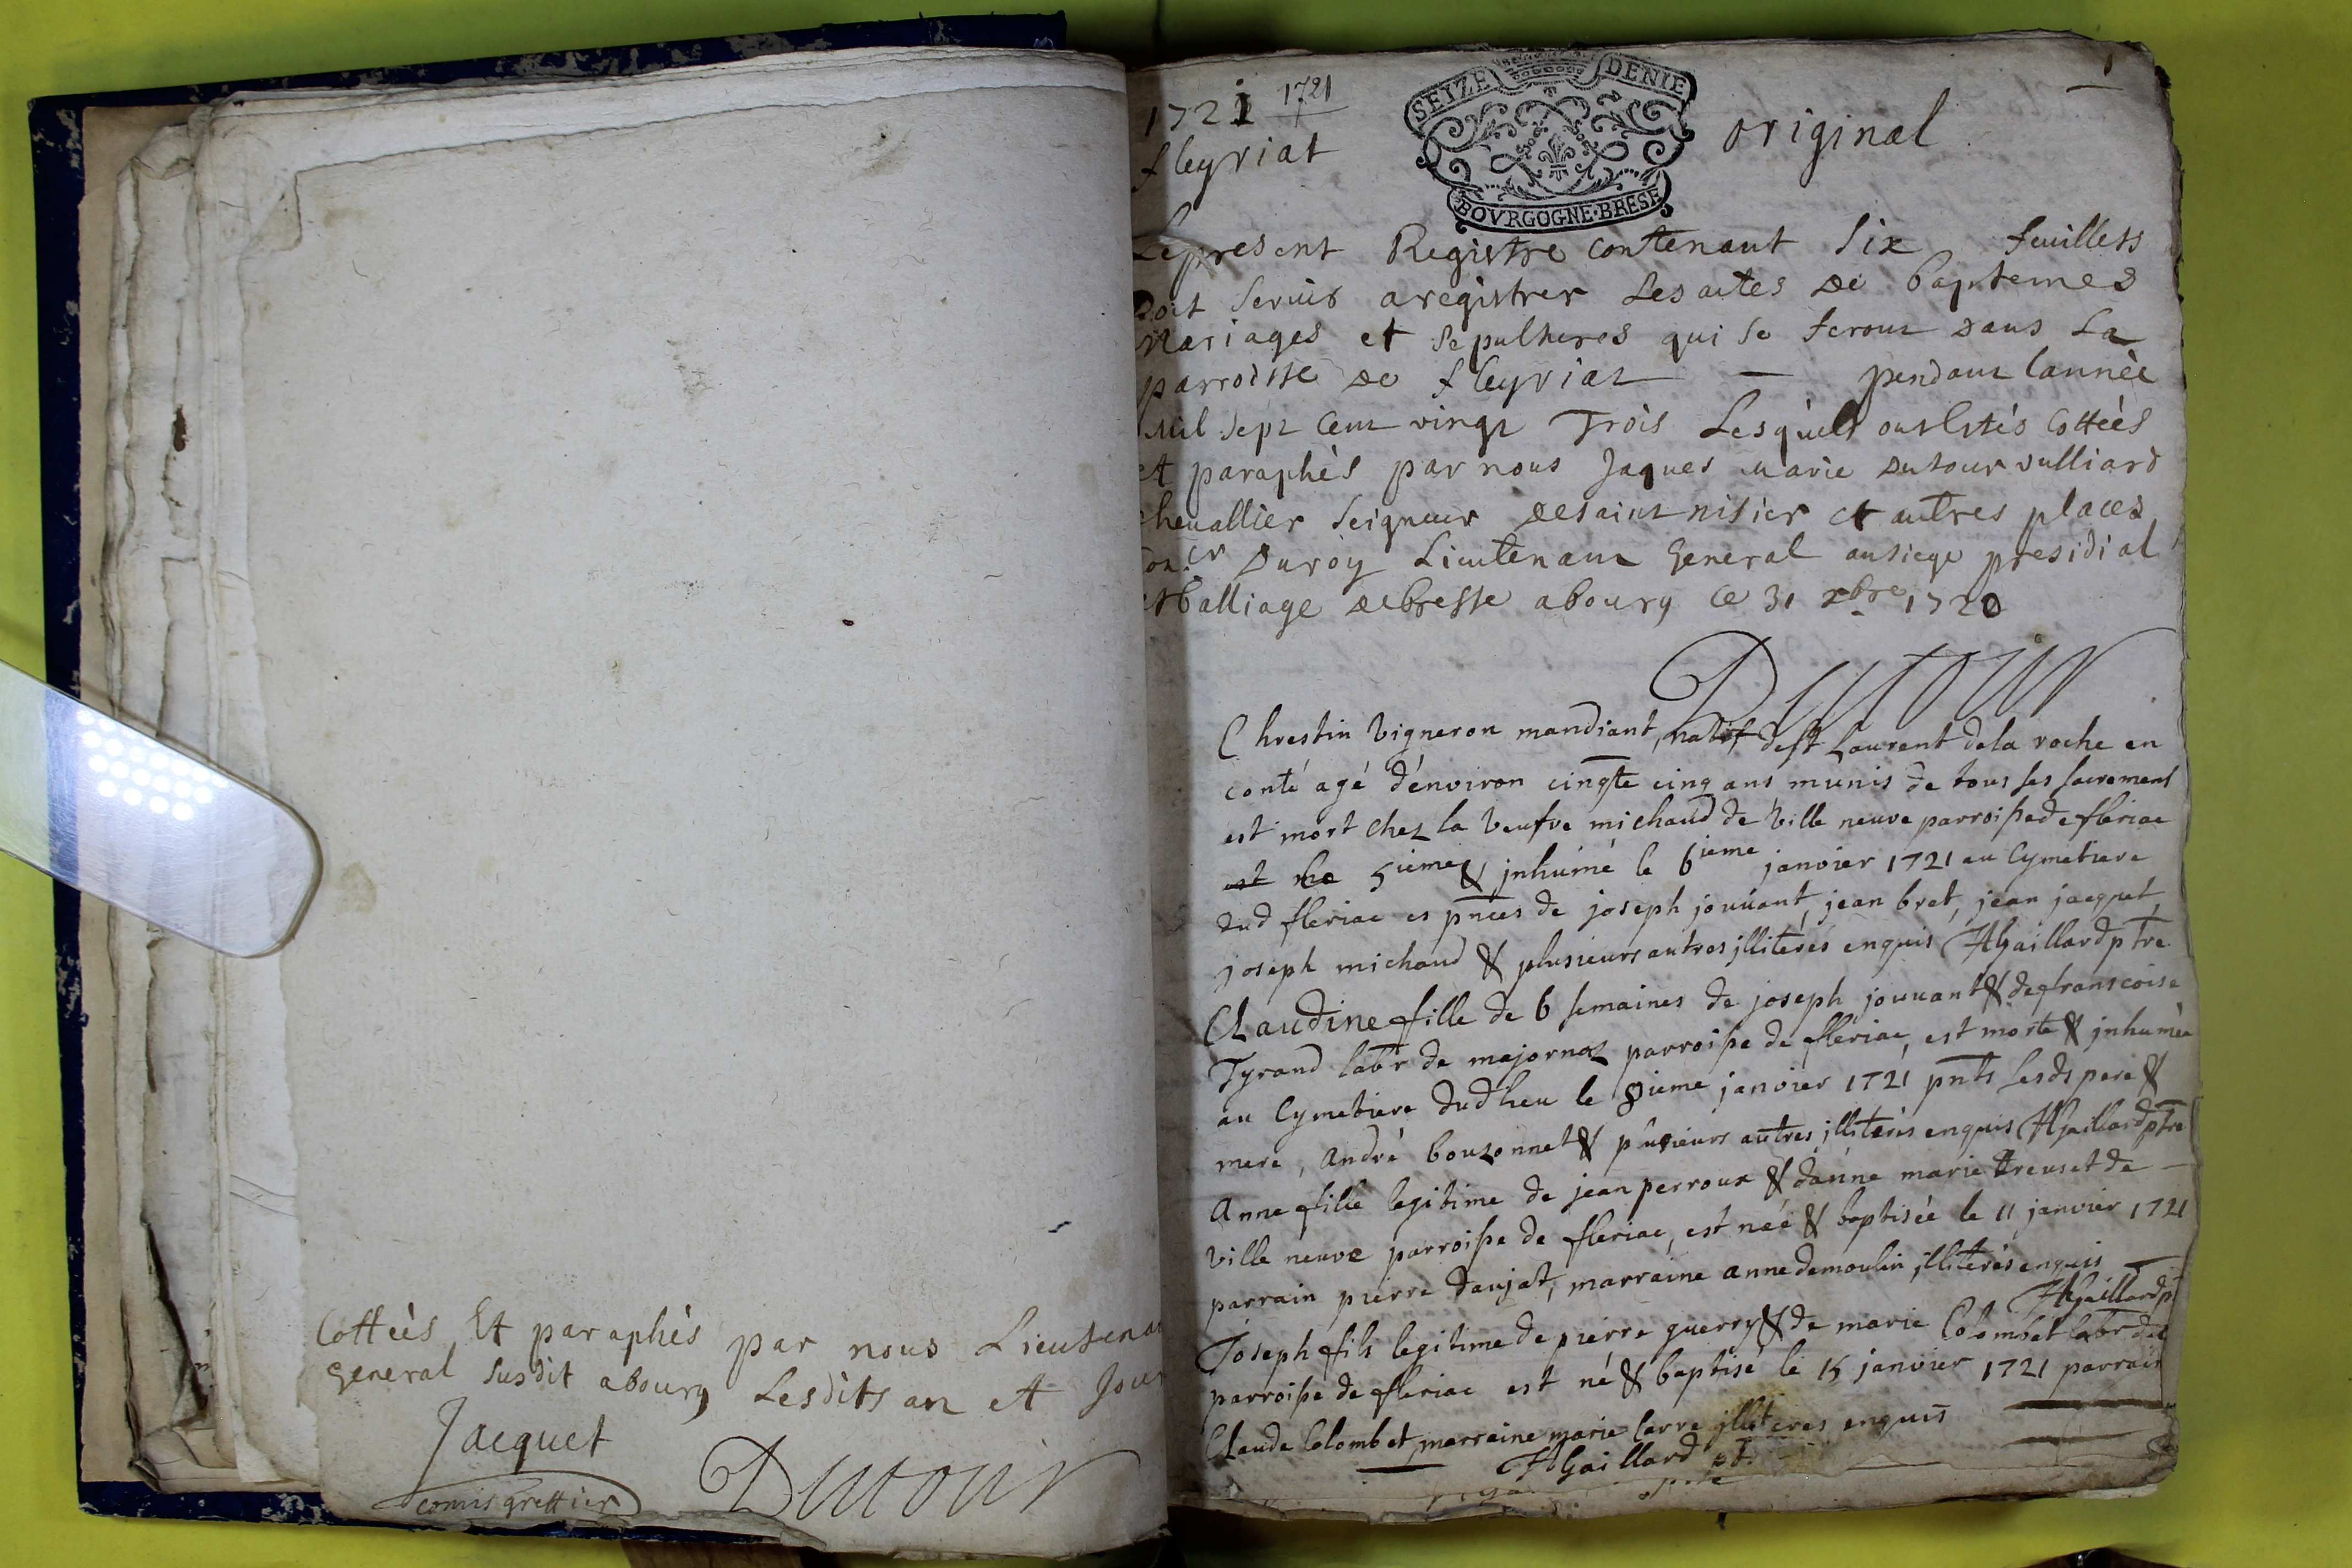 Cottéès Et paraphés par nous Lieutena
General susdit abourg Lesdits an et Jour
Jacquet
comis greffier
Dutour
1721 1721
fleyriat
SEIZE DENIE
BOVRGOGNE·BRESE
original
1
Le present Registre contenant Six feuillets
Doit servir aregistrer Les actes de baptemes
Mariages et Sepultures qui se feront dans La
parroisse de fleyriat — pendant lannèe
Mil sept cent vingt Trois Lesquels ont Estés cottèès
et paraphès par nous Jaques marie dutour vulliard
chevallier Seigneur de saint nisier et autres places
Con.er Duroy Lieutenant General au siege presidial
et balliage de bresse abourg ce 31 xbre 1720
Dutour
Chrestin Vigneron mandiant, natif de st Laurent dela roche en
conté agé d'environ cingte cinq ans munis de tous ses sacrement
est mort chez la veufve michaud de Ville neuve parroisse de fleriac
est le 5ieme & jnhumé le 6ieme janvier 1721 au Cymetiere
dud fleriac es pnces de joseph jouvant, jean bret, jean jacquet,
joseph michaud & plusieurs autres jlliterés enquis AGaillard ptre
Claudine fille de 6 semaines de joseph jouvant & de francoise
Tyrand labr de majornas parroisse de fleriac, est morte & jnhumée
au Cymetiere dud lieu le 8ieme janvier 1721 pnts lesds pere &
mere, André bouzonnet & plusieurs autres jlliterés enquis AGaillard ptre
Anne fille legitime de jean perroux & danne marie Creuset de —
Ville neuve parroisse de fleriac, est née & baptisée le 11 janvier 1721
parrain pierre danjat, marraine anne demoulin jlliterés enquis —
AGaillard p
Joseph fils legitime de pierre guerry & de marie Colombet labr de
parroisse de fleriac est né & baptisé le 15 janvier 1721 parrain
Claude Colombet marraine marie larre jlliteres enquis
AGaillard pt